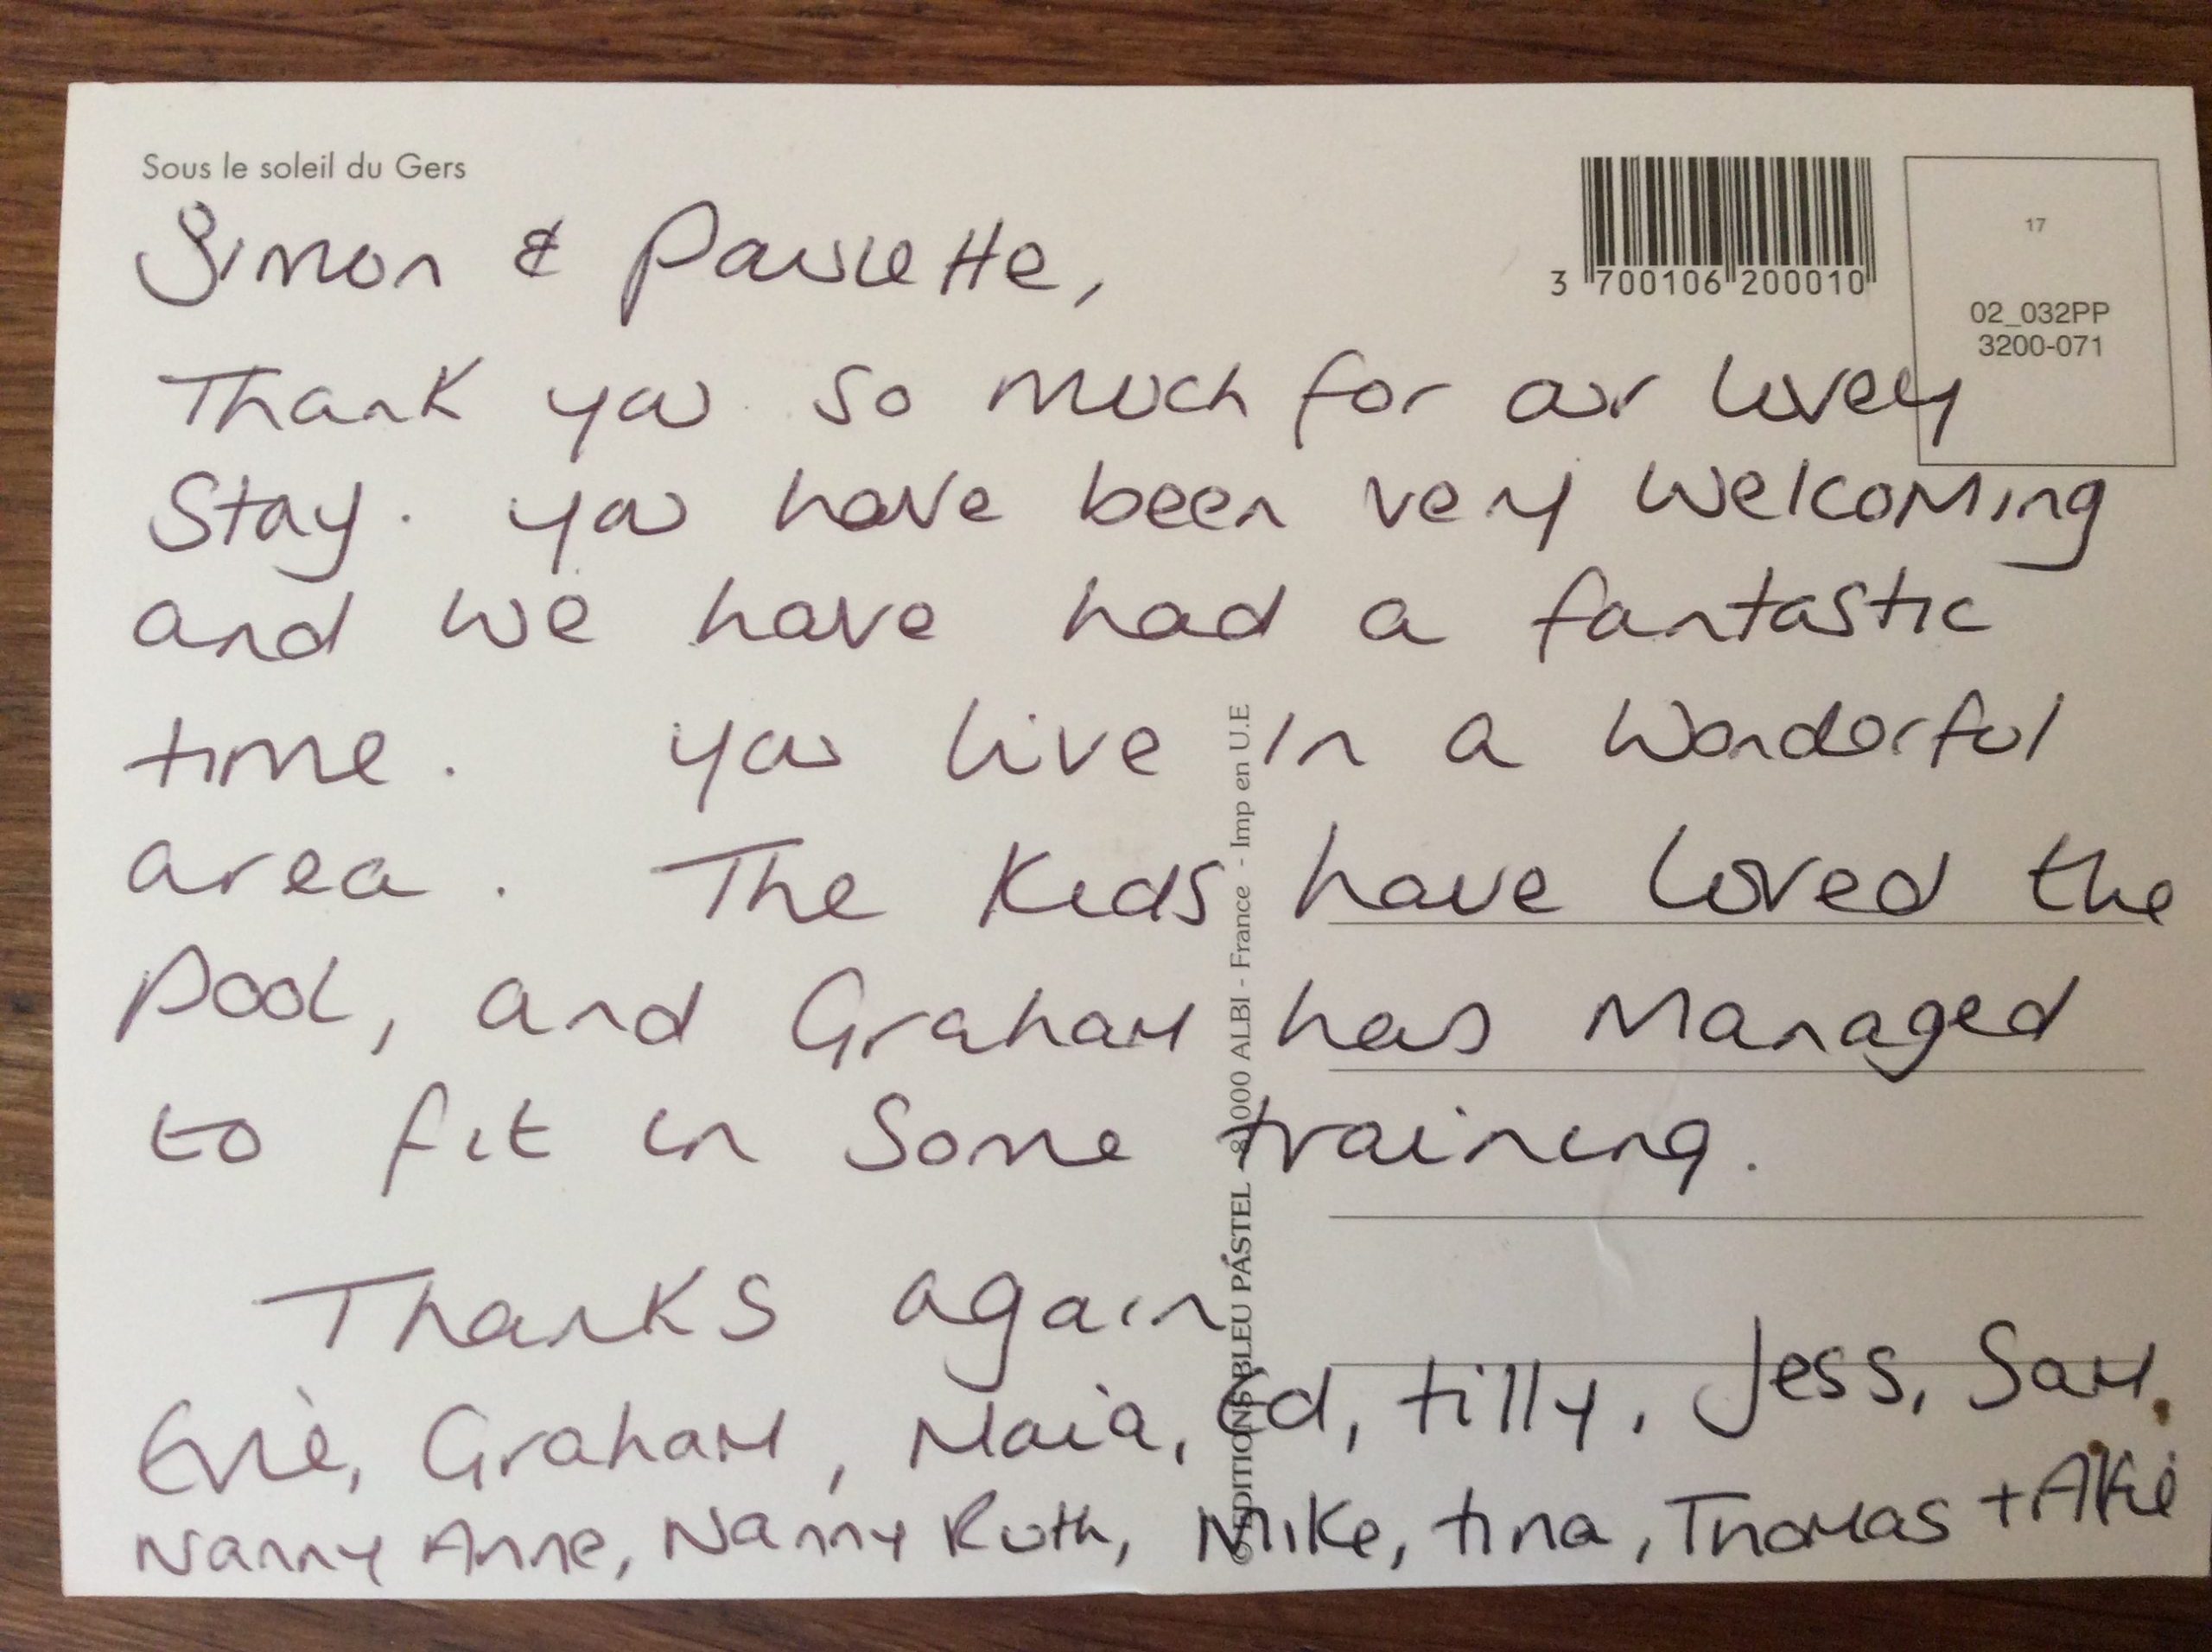 Sous le soleil du Gers
3 700106 200010
17
02_032PP
3200-071
Simon & Paulette,
Thank you so much for our lovely
Stay. you have been very welcoming
and we have had a fantastic
time. you live in a wonderful
area. The Kids have loved the
pool, and Graham has Managed
to fit in some training.
Thanks again
Evie, Graham, Maia, Ed, tilly, Jess, Sam,
Nanny Anne, Nanny Ruth, Mike, tina, Thomas + Alfie
EDITIONS BLEU PASTEL - 81000 ALBI - France - Imp en U.E